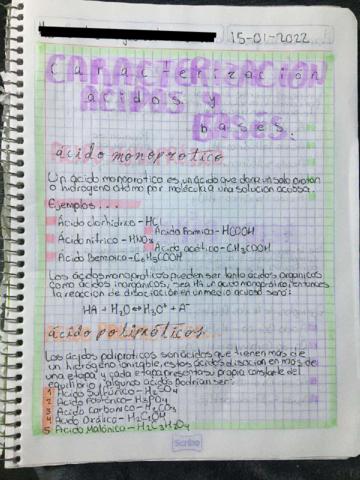 15-01-2022
CARACTERIZACION
ACIDOS y
BASES.
ácido monoprotico
Un ácido monoprotico es un ácido que dona un solo proton
o hidrogeno átomo por molécula a una solución acuosa.
Ejemplos...
Ácido clorhídrico - HCl
Ácido formico - HCOOH
Ácido nítrico - HNO3
Ácido acético - CH3COOH
Ácido Benzoico - C6H5COOH
Los ácidos monoproticos pueden ser tanto ácidos organicos
como ácidos inorganicos, sea HA un ácido monoprótico, entonces
la reacción de disociación en un medio acuoso será:
HA + H2O ⇌ H3O+ + A-
ácido polipróticos
Los ácidos poliproticos son ácidos que tienen más de
un hidrógeno ionizable, estos ácidos disocian en más de
una etapa y cada etapa presenta su propia constante del
equilibrio, algunos ácidos podrían ser:
1 Ácido Sulfúrico - H2SO4
2 Ácido Fosfórico - H3PO4
3 Ácido Carbonico - H2CO3
4 Ácido Oxálico - H2C2O4
5 Ácido Malónico - H2C3H2O4
Scribe